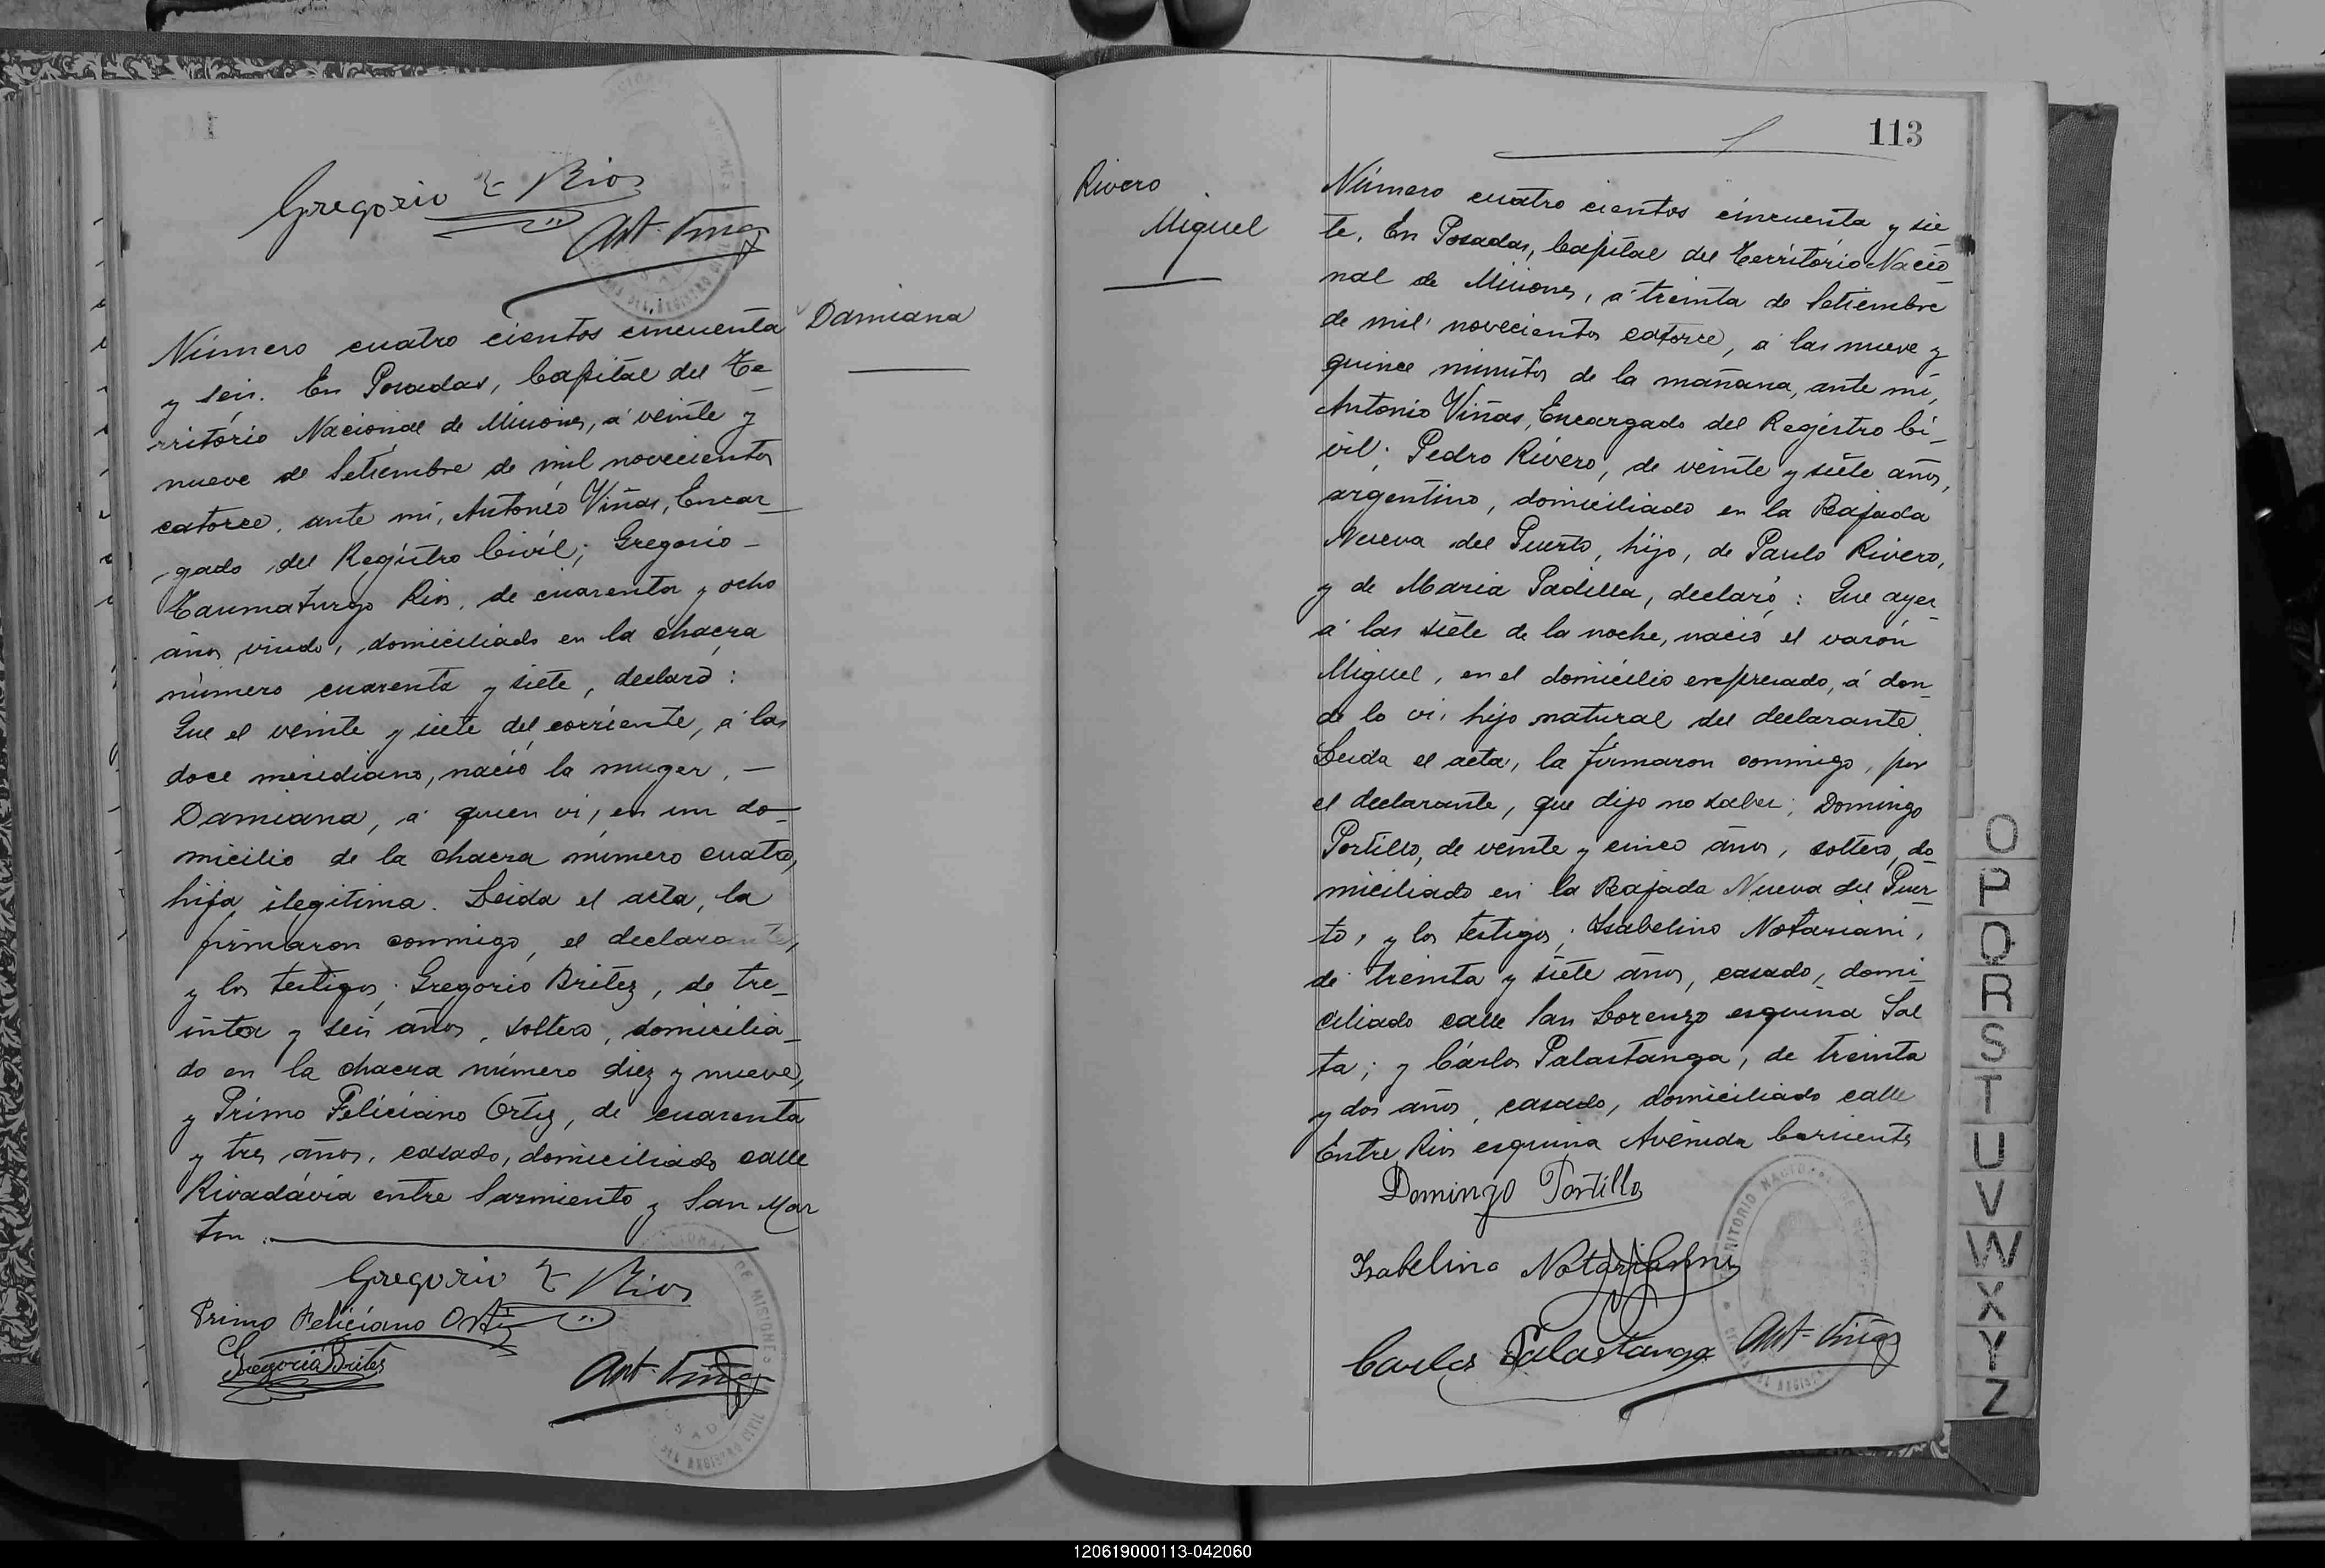 Gregorio T Rios
Ant. Viñas
Damiana
Número cuatro cientos cincuenta
y seis. En Posadas, Capital del Te-
rritório Nacional de Misiones, á veinte y
nueve de Setiembre de mil novecientos
catorce, ante mí, Antonio Viñas, Encar-
gado del Registro Civil; Gregorio -
Taumaturgo Rios, de cuarenta y ocho
años, viudo, domiciliado en la chacra
número cuarenta y siete, declaró:
Que el veinte y siete del corriente, á las
doce meridiano, nació la muger, -
Damiana, á quien vi, en un do-
micilio de la chacra número cuatro,
hija ilegitima. Leida el acta, la
firmaron conmigo, el declarante,
y los testigos; Gregorio Britez, de tre-
inta y seis años, soltero, domicilia-
do en la chacra número diez y nueve,
y Primo Feliciano Ortiz, de cuarenta
y tres años, casado, domiciliado calle
Rivadávia entre Sarmiento y San Mar
tin.
Gregorio T Rios
Primo Feliciano Ortiz
Gregorio Britez
Ant. Viñas
113
Rivero
Miguel
Número cuatro cientos cincuenta y sie-
te. En Posadas, Capital del Território Nacio-
nal de Misiones, á treinta de Setiembre
de mil novecientos catorce, á las nueve y
quince minutos de la mañana, ante mí,
Antonio Viñas, Encargado del Registro Ci-
vil; Pedro Rivero, de veinte y siete años,
argentino, domiciliado en la Bajada
Nueva del Puerto, hijo, de Paulo Rivero,
y de Maria Padilla, declaró: Que ayer
á las siete de la noche, nació el varón
Miguel, en el domicilio expresado, á don-
de lo vi, hijo natural del declarante.
Leida el acta, la firmaron conmigo, por
el declarante, que dijo no saber; Domingo
Portillo, de veinte y cinco años, soltero, do-
miciliado en la Bajada Nueva del Puer-
to, y los testigos; Isabelino Notariani,
de treinta y siete años, casado, domi-
ciliado calle San Lorenzo esquina Sal
ta; y Cárlos Palastanga, de treinta
y dos años, casado, domiciliado calle
Entre Rios esquina Avenida Corrientes
Domingo Portillo
Isabelino Notarianni
Carlos Palastanga
Ant. Viñas
O
P
Q
R
S
T
U
V
W
X
Y
Z
120619000113-042060